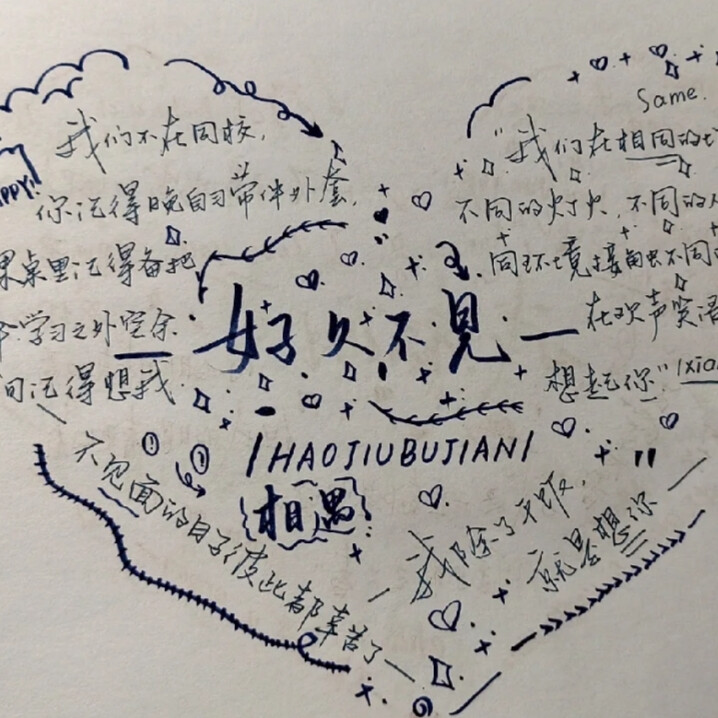 我们不在同校，
PPY!"
你记得晚自习带件外套，
桌里记得备把
学习之外空余
间记得想我
Same.
"我们在相同的
不同的灯火，不同的
同环境接触不同
在欢声笑语
想起你"
好久不见—
|HAOJIUBUJIAN|
相遇
不见面的日子彼此都辛苦了—
我除了干饭，
就是想你